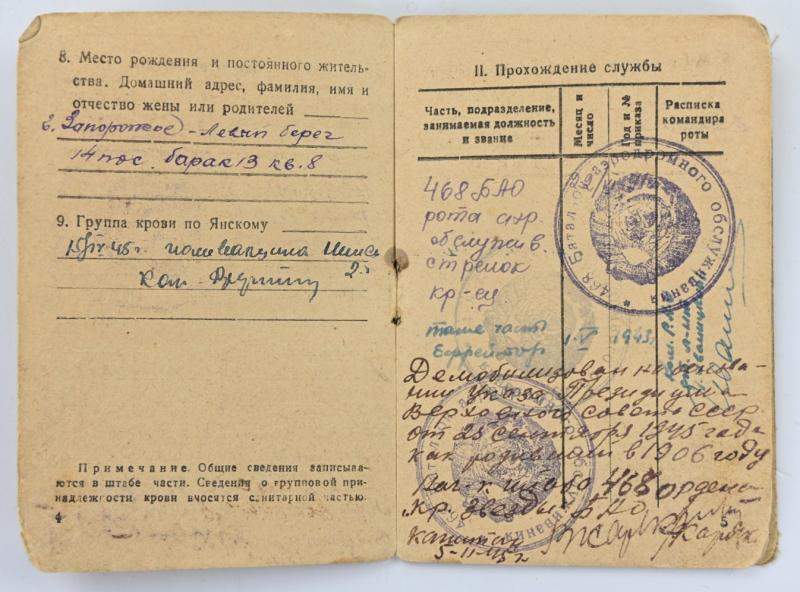 8. Место рождения и постоянного житель-
ства. Домашний адрес, фамилия, имя и
отчество жены или родителей
г. Запорожье - Левый берег
14 пос. барак 13 кв. 8
9. Группа крови по Янскому
45 г.
Примечание. Общие сведения записыва-
ются в штабе части. Сведения о групповой при-
надлежности крови вносятся санитарной частью.
4
II. Прохождение службы
Часть, подразделение, занимаемая должность и звание
Месяц и число
Год и № приказа
Расписка командира роты
468 БАО
рота аэр.
обслужив.
стрелок
кр-ец
468 Батальон аэродромного обслуживания
таже часть 1.V 1943г
Ефрейтор
Демобилизован на основа-
нии Указа Президиума
Верховного совета СССР
от 25 сентября 1945 года
как родивший в 1906 году
Нач-к штаба 468 ордена
Кр. Звезды БАО
капитан
5-11-45 г
5